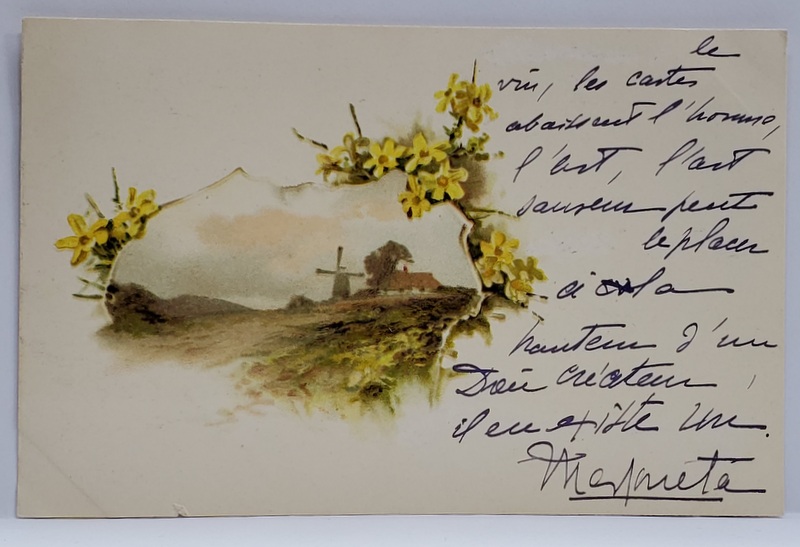 le
vin, les cartes
abaissent l'homme,
l'art, l'art
peut
le placer
à la
hauteur d'un
créateur,
il en existe un.